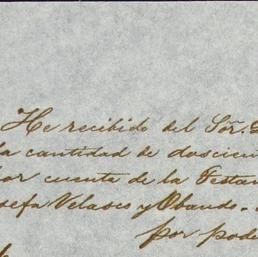 He recibido del Sōr.
la cantidad de doscien
or cuenta de la Testam
sefa Velasco y Obando.
por pode